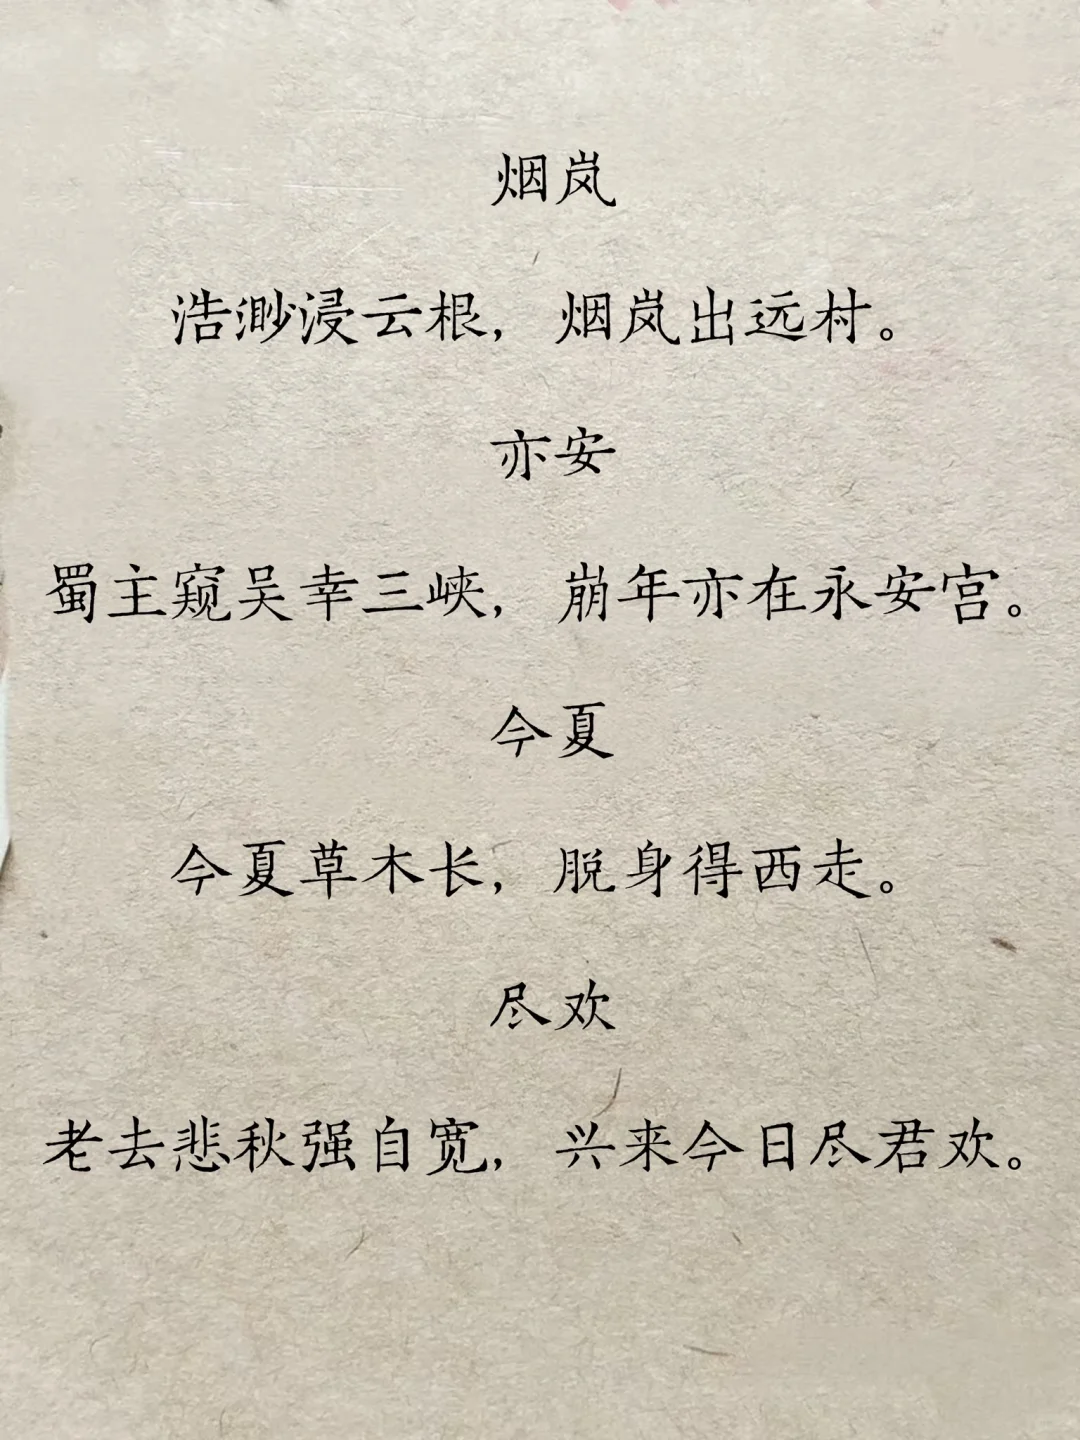 烟岚
浩渺浸云根，烟岚出远村。
亦安
蜀主窥吴幸三峡，崩年亦在永安宫。
今夏
今夏草木长，脱身得西走。
尽欢
老去悲秋强自宽，兴来今日尽君欢。